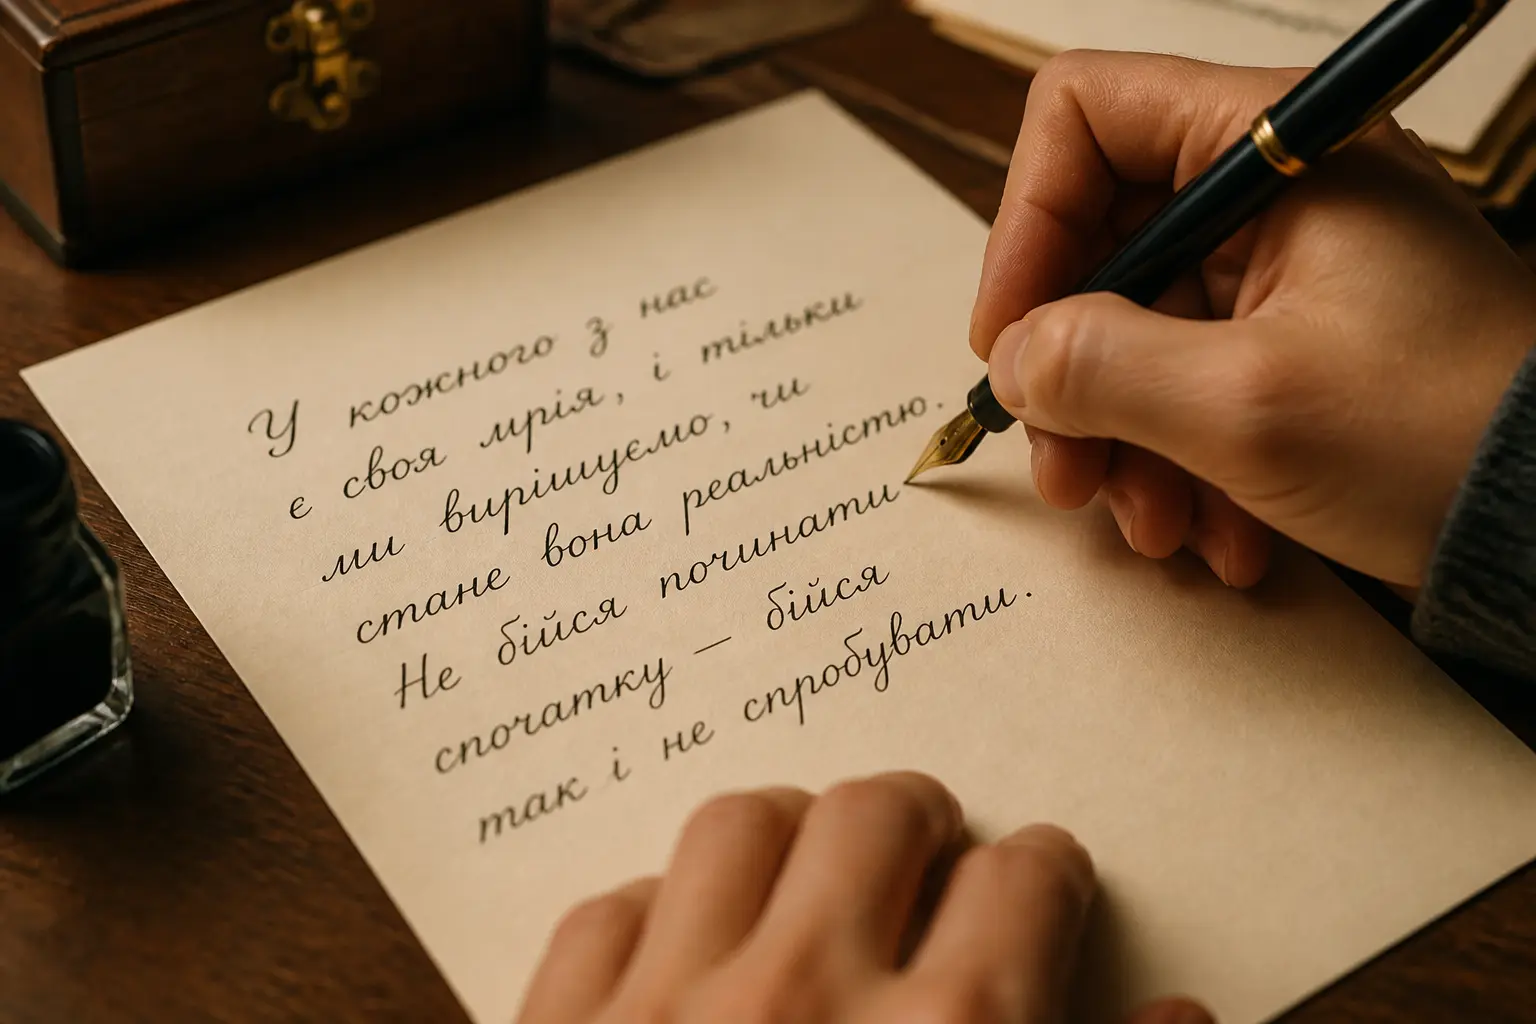 У кожного з нас
є своя мрія, і тільки
ми вирішуємо, чи
стане вона реальністю.
Не бійся починати
спочатку — бійся
так і не спробувати.